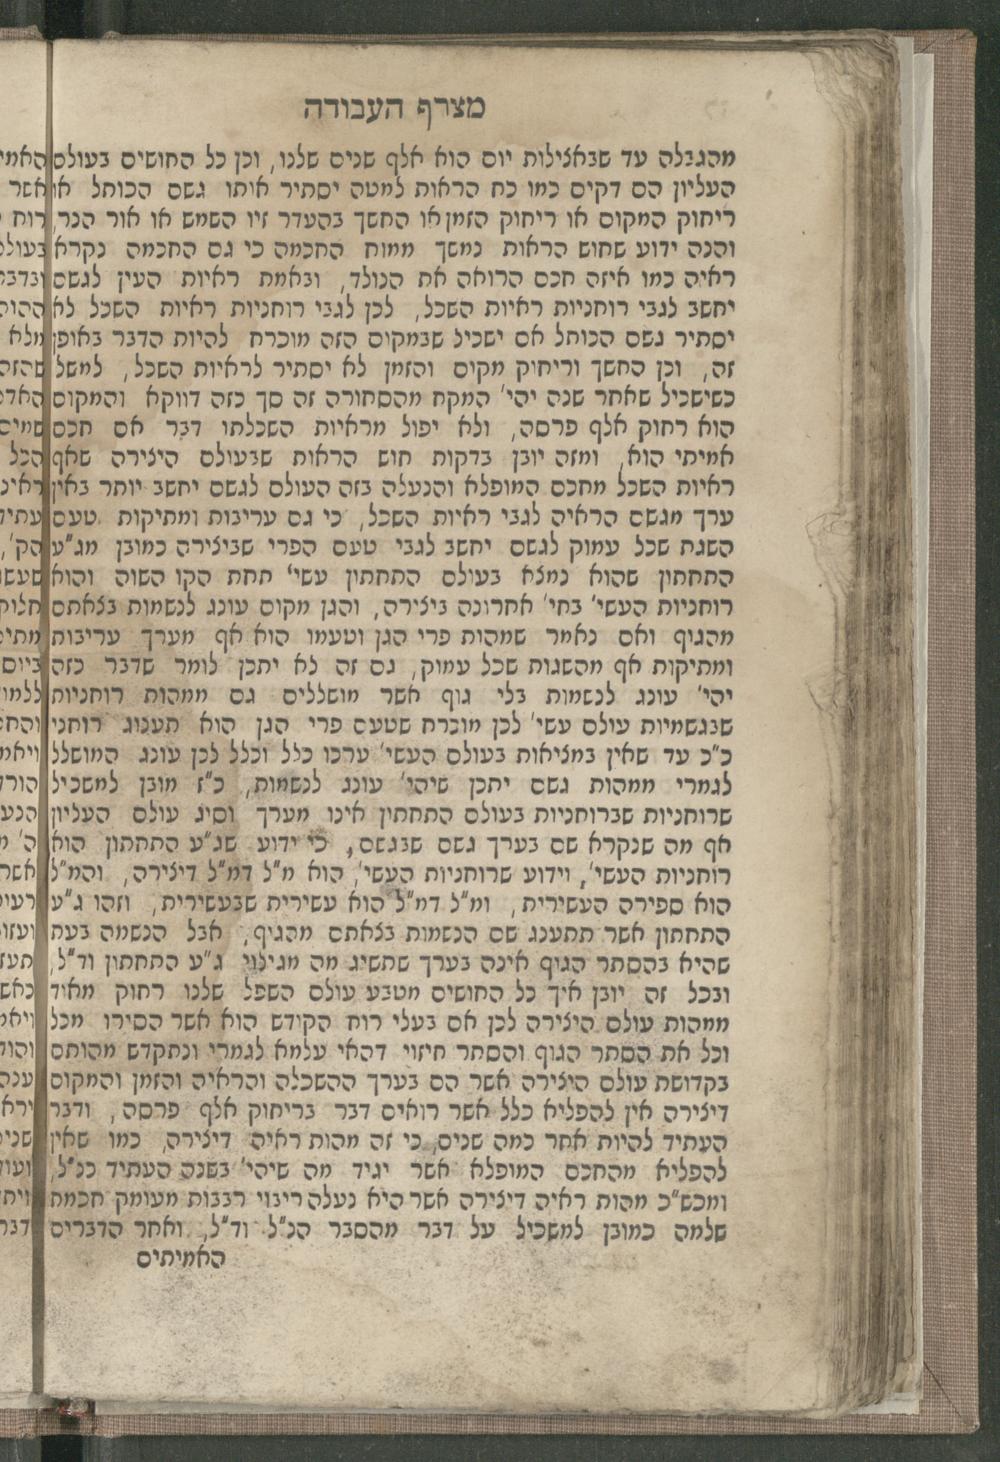 מצרף העבודה
מהגבלה עד שבאצילות יום הוא אלף שנים שלנו, וכן כל החושים בעולם
העליון הם דקים כמו כח הראות למטה יסתיר אותו גשם הכותל או
ריחוק המקום או ריחוק הזמן או החשך בהעדר זיו השמש או אור הנר,
והנה ידוע שחוש הראות נמשך ממוח החכמה כי גם החכמה נקרא
ראיה כמו איזה חכם הרואה את הנולד, ובאמת ראיות העין לגשם
יחשב לגבי רוחניות ראיות השכל, לכן לגבי רוחניות ראיות השכל לא
יסתיר גשם הכותל אם ישכיל שבמקום הזה מוכרח להיות הדבר באופן
זה, וכן החשך וריחוק מקום והזמן לא יסתיר לראיות השכל, למשל
כשישכיל שאחר שנה יהי' המקח מהסחורה זה סך כזה דווקא והמקום
הוא רחוק אלף פרסה, ולא יפול מראיות השכלתו דבר אם חכם
אמיתי הוא, ומזה יובן בדקות חוש הראות שבעולם היצירה שאף
ראיות השכל מחכם המופלא והנעלה בזה העולם לגשם יחשב יותר באין
ערך מגשם הראיה לגבי ראיות השכל, כי גם עריבות ומתיקות טעם
השגת שכל עמוק לגשם יחשב לגבי טעם הפרי שביצירה כמובן מג"ע
התחתון שהוא נמצא בעולם התחתון עשי' תחת הקו השוה והוא
רוחניות העשי' בחי' אחרונה ביצירה, והגן מקום עונג לנשמות בצאתם
מהגוף ואם נאמר שמהות פרי הגן וטעמו הוא אף מערך עריבות
ומתיקות אף מהשגות שכל עמוק, גם זה לא יתכן לומר שדבר כזה
יהי' עונג לנשמות בלי גוף אשר מושללים גם ממהות רוחניות
שבגשמיות עולם עשי' לכן מוכרח שטעם פרי הגן הוא תענוג רוחני
כ"כ עד שאין במציאות בעולם העשי' ערכו כלל וכלל לכן עונג המושלל
לגמרי ממהות גשם יתכן שיהי' עונג לנשמות, כ"ז מובן למשכיל
שרוחניות שברוחניות בעולם התחתון אינו מערך וסיג עולם העליון
אף מה שנקרא שם בערך גשם שבגשם, כי ידוע שג"ע התחתון הוא
רוחניות העשי', וידוע שרוחניות העשי', הוא מ"ל דמ"ל דיצירה, והמ"ל
הוא ספירה העשירית, ומ"ל דמ"ל הוא עשירית שבעשירית, וזהו ג"ע
התחתון אשר תתענג שם הנשמות בצאתם מהגיף, אבל הנשמה בעת
שהיא בהסתר הגוף אינה בערך שתשיג מה מגילוי ג"ע התחתון וד"ל,
ובכל זה יובן איך כל החושים מטבע עולם השפל שלנו רחוק מאוד
ממהות עולם היצירה לכן אם בעלי רוח הקודש הוא אשר הסירו מכל
וכל את הסתר הגוף והסתר חיזוי דהאי עלמא לגמרי ונתקדש מהותם
בקדושת עולם היצירה אשר הם בערך ההשכלה והראיה והזמן והמקום
דיצירה אין להפליא כלל אשר רואים דבר בריחוק אלף פרסה, ודבר
העתיד להיות אחר כמה שנים, כי זה מהות ראיה דיצירה, כמו שאין
להפליא מהחכם המופלא אשר יגיד מה שיהי' בשנה העתיד כנ"ל,
ומכש"כ מהות ראיה דיצירה אשר היא נעלה ריבוי רבבות מעומק חכמת
שלמה כמובן למשכיל על דבר מהסבר הנ"ל וד"ל, ואחר הדברים
האמיתים